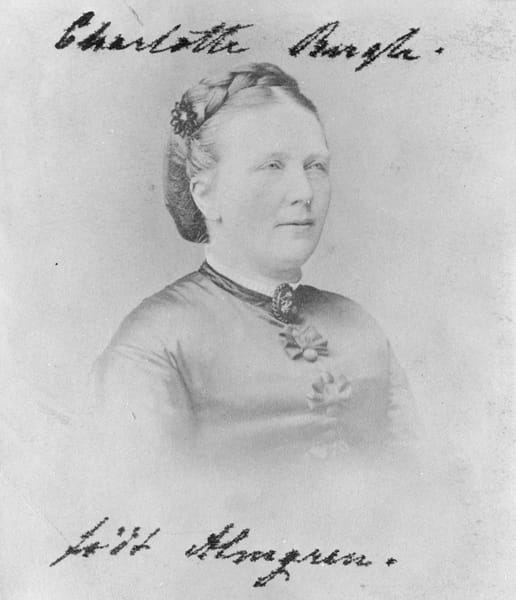 Charlotte Bergh.
född Almgren.